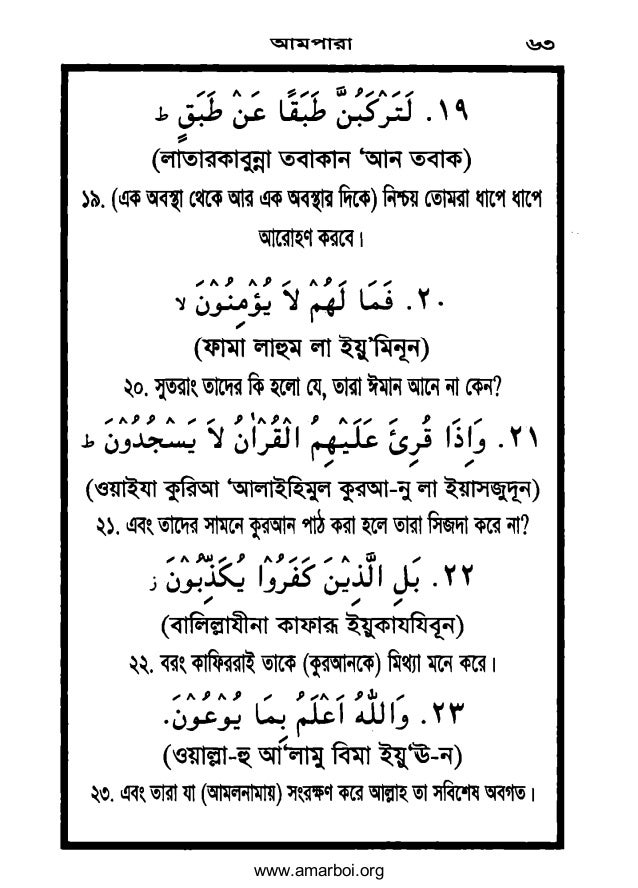 আমপারা ৬৩
١٩. لَتَرْكَبُنَّ طَبَقًا عَنْ طَبَقٍ ط
(লাতারকাবুন্না তবাকান ‘আন তবাক)
১৯. (এক অবস্থা থেকে আর এক অবস্থার দিকে) নিশ্চয় তোমরা ধাপে ধাপে
আরোহণ করবে।
٢٠. فَمَا لَهُمْ لاَ يُؤْمِنُوْنَ لا
(ফামা লাহুম লা ইয়ু’মিনূন)
২০. সুতরাং তাদের কি হলো যে, তারা ঈমান আনে না কেন?
٢١. وَاِذَا قُرِئَ عَلَيْهِمُ الْقُرْاٰنُ لاَ يَسْجُدُوْنَ ط
(ওয়াইযা কুরিআ ‘আলাইহিমুল কুরআ-নু লা ইয়াসজুদূন)
২১. এবং তাদের সামনে কুরআন পাঠ করা হলে তারা সিজদা করে না?
٢٢. بَلِ الَّذِيْنَ كَفَرُوْا يُكَذِّبُوْنَ ز
(বালিল্লাযীনা কাফারূ ইয়ুকাযযিবূন)
২২. বরং কাফিররাই তাকে (কুরআনকে) মিথ্যা মনে করে।
٢٣. وَاللّٰهُ اَعْلَمُ بِمَا يُوْعُوْنَ.
(ওয়াল্লা-হু আ‘লামু বিমা ইয়ু‘ঊ-ন)
২৩. এবং তারা যা (আমলনামায়) সংরক্ষণ করে আল্লাহ তা সবিশেষ অবগত।
www.amarboi.org